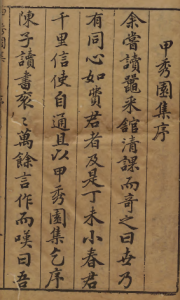 甲秀園集序
余嘗讀鼂采舘清課而奇之曰世乃
有同心如費君者及是丁未小春君
千里信使自通且以甲秀園集乞序
陳子讀畫裂之萬餘言作而嘆曰吾